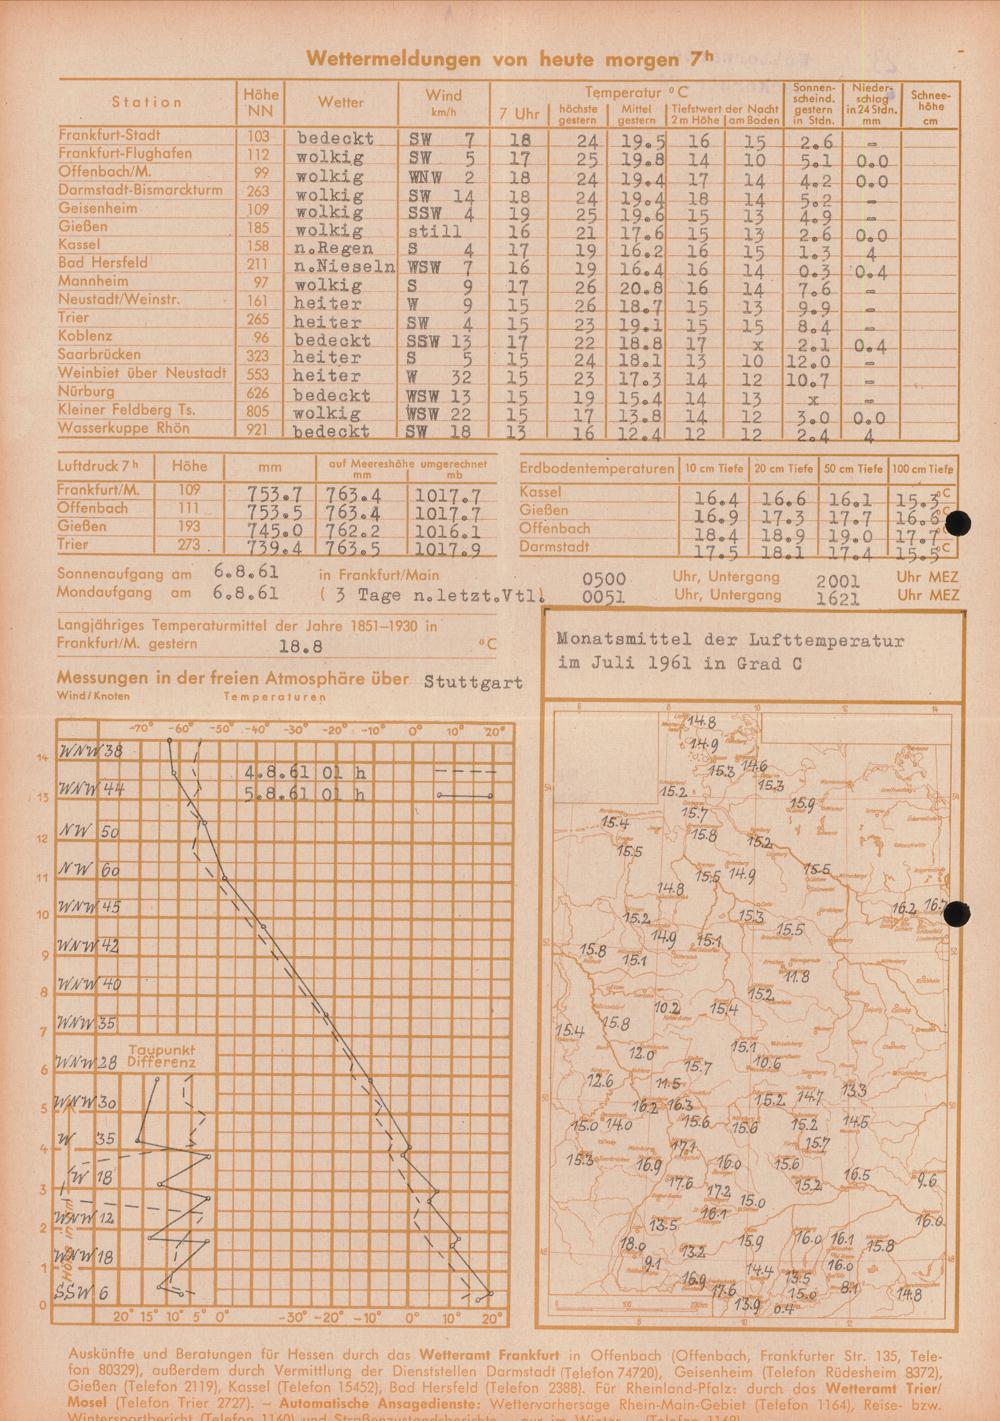 Wettermeldungen von heute morgen 7h
Station Höhe NN Wetter Wind km/h Temperatur °C Sonnenscheind. gestern in Stdn. Niederschlag in 24 Stdn. mm Schneehöhe cm
7 Uhr höchste gestern Mittel gestern Tiefstwert der Nacht 2 m Höhe am Boden
Frankfurt-Stadt 103 bedeckt SW 7 18 24 19.5 16 15 2.6 -
Frankfurt-Flughafen 112 wolkig SW 5 17 25 19.8 14 10 5.1 0.0
Offenbach/M. 99 wolkig WNW 2 18 24 19.4 17 14 4.2 0.0
Darmstadt-Bismarckturm 263 wolkig SW 14 18 24 19.4 18 14 5.2 -
Geisenheim 109 wolkig SSW 4 19 25 19.6 15 13 4.9 -
Gießen 185 wolkig still 16 21 17.6 15 13 2.6 0.0
Kassel 158 n.Regen S 4 17 19 16.2 16 15 1.3 4
Bad Hersfeld 211 n.Nieseln WSW 7 16 19 16.4 16 14 0.3 0.4
Mannheim 97 wolkig S 9 17 26 20.8 16 14 7.6 -
Neustadt/Weinstr. 161 heiter W 9 15 26 18.7 15 13 9.9 -
Trier 265 heiter SW 4 15 23 19.1 15 15 8.4 -
Koblenz 96 bedeckt SSW 13 17 22 18.8 17 x 2.1 0.4
Saarbrücken 323 heiter S 5 15 24 18.1 13 10 12.0 -
Weinbiet über Neustadt 553 heiter W 32 15 23 17.3 14 12 10.7 -
Nürburg 626 bedeckt WSW 13 15 19 15.4 14 13 x -
Kleiner Feldberg Ts. 805 wolkig WSW 22 15 17 13.8 14 12 3.0 0.0
Wasserkuppe Rhön 921 bedeckt SW 18 13 16 12.4 12 12 2.4 4
Luftdruck 7h Höhe mm auf Meereshöhe umgerechnet mm mb
Frankfurt/M. 109 753.7 763.4 1017.7
Offenbach 111 753.5 763.4 1017.7
Gießen 193 745.0 762.2 1016.1
Trier 273 739.4 763.5 1017.9
Erdbodentemperaturen 10 cm Tiefe 20 cm Tiefe 50 cm Tiefe 100 cm Tiefe
Kassel 16.4 16.6 16.1 15.3 °C
Gießen 16.9 17.3 17.7 16.6 °C
Offenbach 18.4 18.9 19.0 17.7 °C
Darmstadt 17.5 18.1 17.4 15.5 °C
Sonnenaufgang am 6.8.61 in Frankfurt/Main 0500 Uhr, Untergang 2001 Uhr MEZ
Mondaufgang am 6.8.61 ( 3 Tage n.letzt.Vtl) 0051 Uhr, Untergang 1621 Uhr MEZ
Langjähriges Temperaturmittel der Jahre 1851–1930 in
Frankfurt/M. gestern 18.8 °C
Messungen in der freien Atmosphäre über Stuttgart
Wind/Knoten Temperaturen
-70° -60° -50° -40° -30° -20° -10° 0° 10° 20°
14 WNW 38
4.8.61 01 h
13 WNW 44 5.8.61 01 h
12 NW 50
11 NW 60
10 WNW 45
9 WNW 42
8 WNW 40
7 WNW 35
Taupunkt
Differenz
6 WNW 28
5 WNW 30
4 W 35
3 W 18
2 WNW 12
1 WNW 18
0 SSW 6
Höhe in km
20° 15° 10° 5 0° -30° -20° -10° 0° 10° 20°
Monatsmittel der Lufttemperatur
im Juli 1961 in Grad C
6 8 10 12 14
14.8
14.9
15.3 14.6
15.2 15.3
15.7 15.9
15.4 15.8 15.2
15.5
15.5 14.9 15.5
14.8
15.2 15.3 16.2 16.7
14.9 15.1 15.5
15.8 15.1
11.8
15.2
10.2 15.4
15.4 15.8
12.0 15.1
15.7 10.6
12.6 11.5
15.2 14.7 13.3
16.2 16.3
15.0 14.0 15.6 15.6 15.2 14.5
17.1 15.7
15.3 16.9 16.0 15.6
17.6 17.2 15.0 15.2 16.5 9.6
13.5 16.1 16.0
18.0 13.2 15.9 16.0 16.1 15.8
9.1 14.4 16.0
16.9 17.6 13.5 8.1
13.9 0.4 15.0 14.8
Auskünfte und Beratungen für Hessen durch das Wetteramt Frankfurt in Offenbach (Offenbach, Frankfurter Str. 135, Tele-
fon 80329), außerdem durch Vermittlung der Dienststellen Darmstadt (Telefon 74720), Geisenheim (Telefon Rüdesheim 8372),
Gießen (Telefon 2119), Kassel (Telefon 15452), Bad Hersfeld (Telefon 2388). Für Rheinland-Pfalz: durch das Wetteramt Trier/
Mosel (Telefon Trier 2727). – Automatische Ansagedienste: Wettervorhersage Rhein-Main-Gebiet (Telefon 1164), Reise- bzw.
Wintersportbericht (Telefon 1160) und Straßenzustandsberichte – nur im Winter – (Telefon 1169).